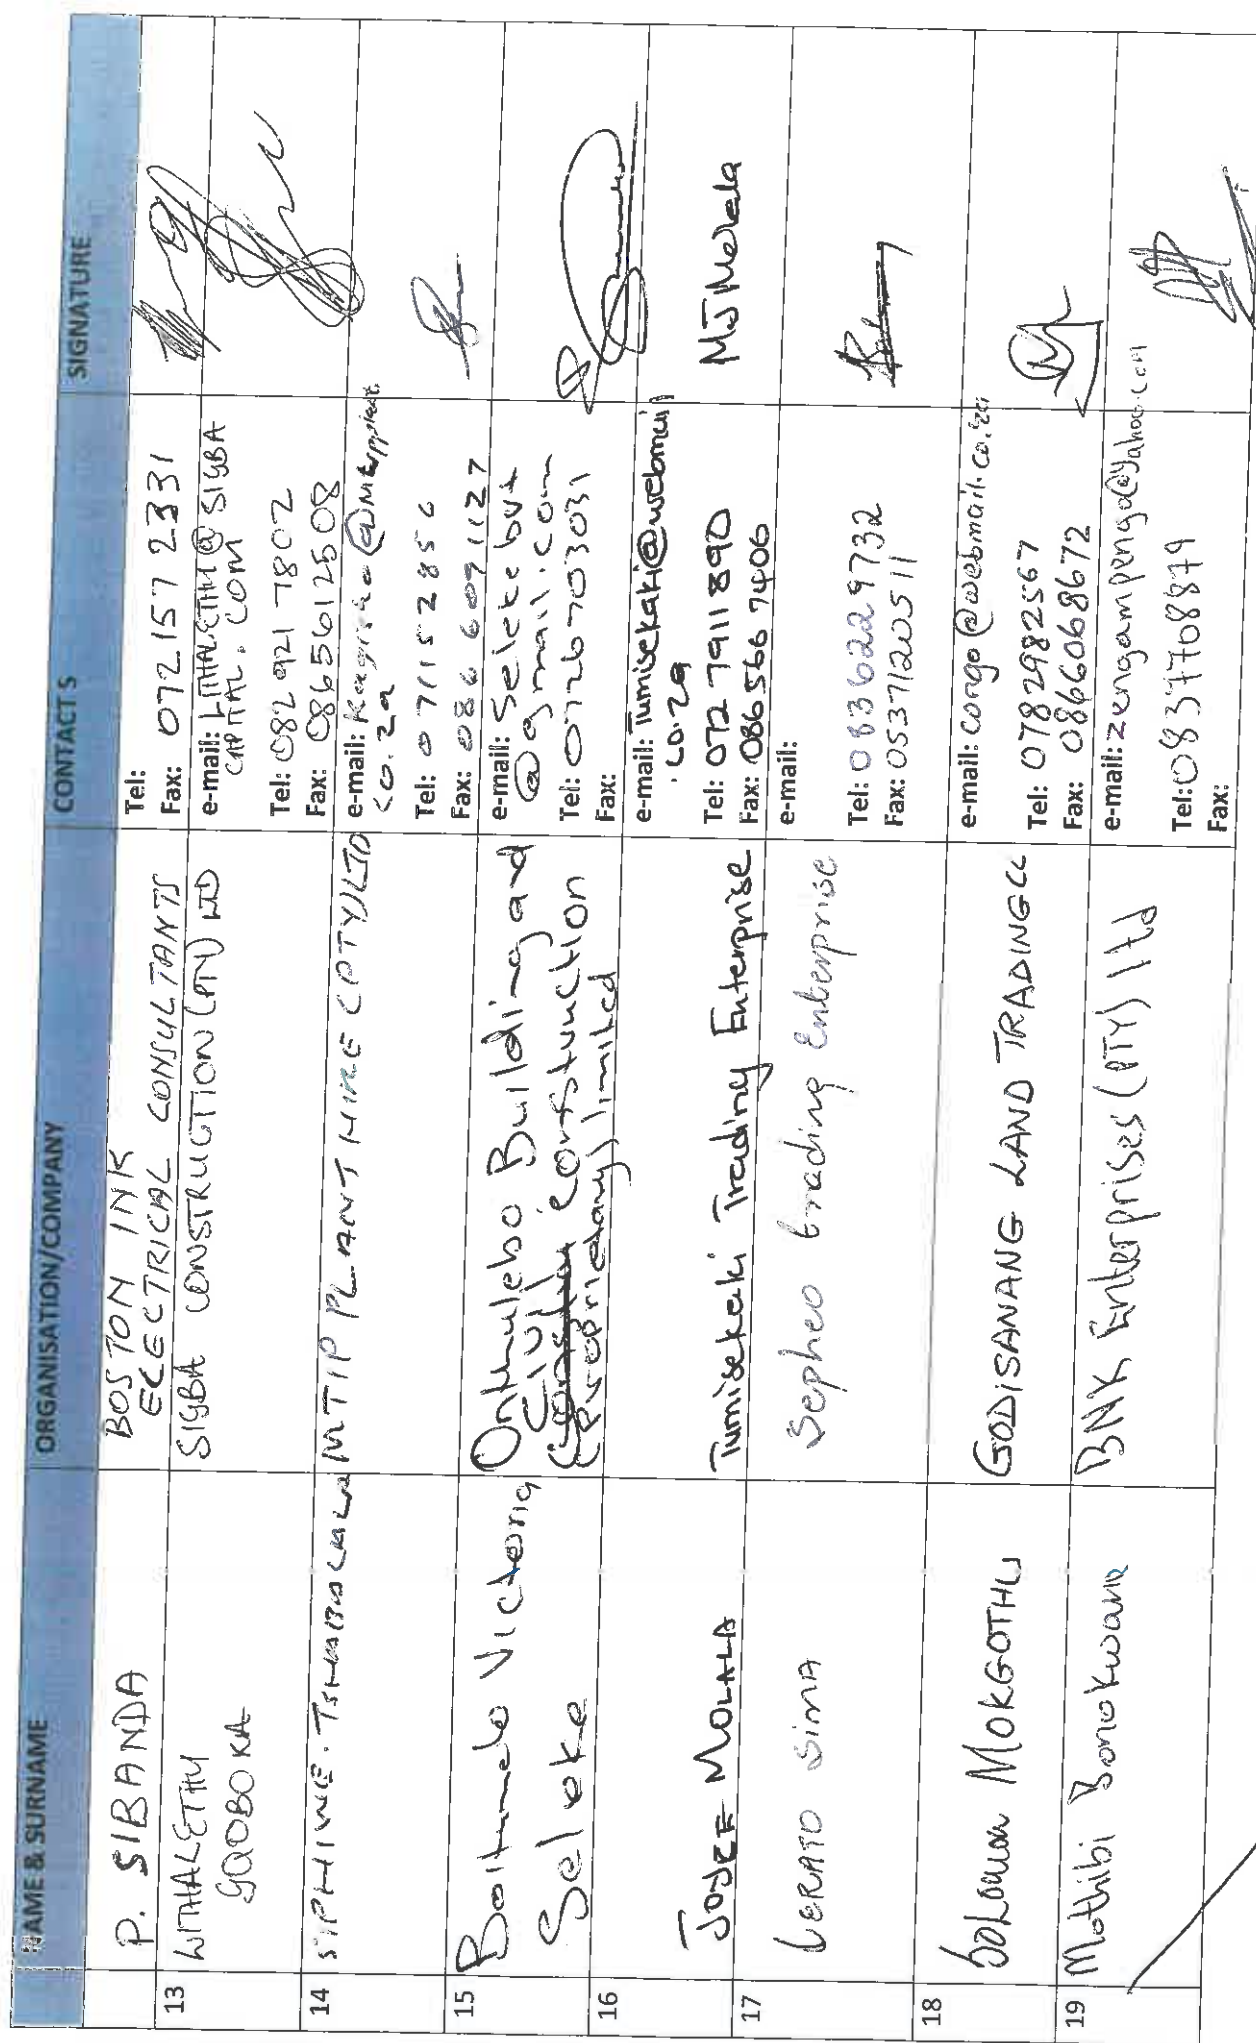 NAME & SURNAME
ORGANISATION/COMPANY
CONTACT S
SIGNATURE
P. SIBANDA
BOSTON INK
ELECTRICAL CONSULTANTS
Tel:
Fax: 072 157 2331
13
LITHALETHU
GQOBOKA
SIGBA CONSTRUCTION (PTY) LTD
e-mail: LITHALETHU@SIGBA
CAPITAL.COM
Tel: 082 921 7802
Fax: 0865612508
14
SIPHIWE.
MTIP PLANT HIRE (PTY) LTD
e-mail:
co.za
Tel: 071152856
Fax: 086 609 1127
15
Boitumelo Victoria
Seleke
Onthulebo Building and
Civil Constunction
(Propriedary) limited
e-mail: Seleke bv4
@gmail.com
Tel: 0726703031
Fax:
16
JOYCE MOLALA
Tumisekaki Trading Enterprise
e-mail: Tumisekaki@webmail
.co.za
Tel: 072 7911890
Fax: 086 566 7406
MJ Molala
17
LERATO SIMA
Sepheo trading Enterprise
e-mail:
Tel: 0836229732
Fax: 0537120511
18
Solomon MOKGOTHU
GODISANANG LAND TRADING CC
e-mail: congo@webmail.co.za
Tel: 0782982567
Fax: 0866068672
19
Mothibi Bonokwane
BNK Enterprises (PTY) ltd
e-mail: zengampengo@yahoo.com
Tel: 0837708879
Fax: